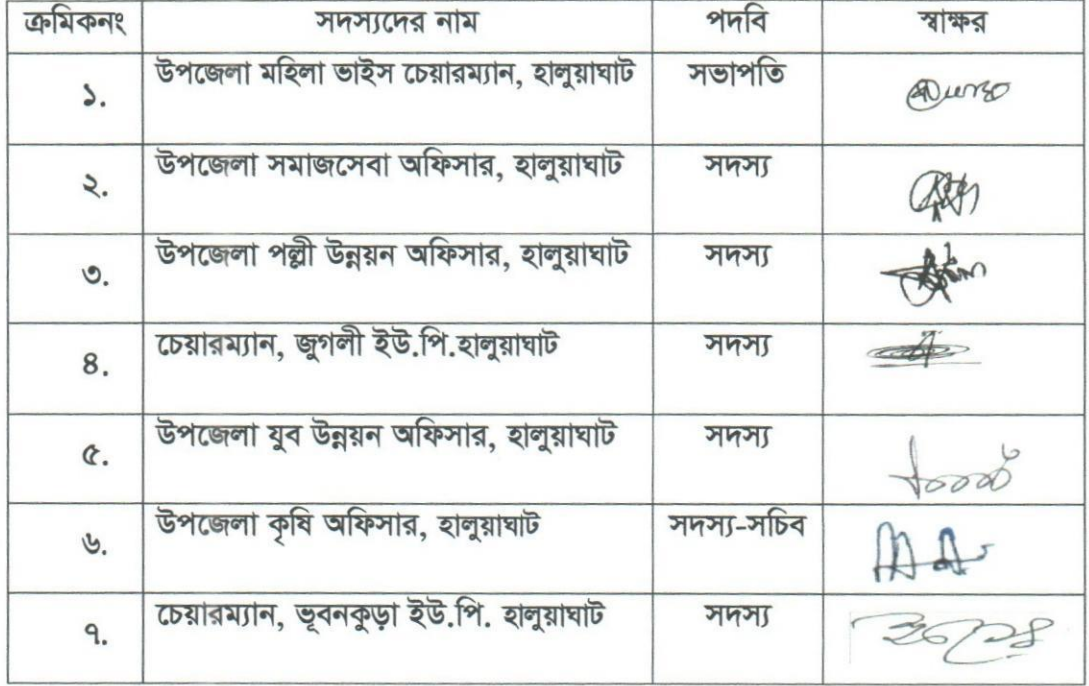 ক্রমিকনং সদস্যদের নাম পদবি স্বাক্ষর
১. উপজেলা মহিলা ভাইস চেয়ারম্যান, হালুয়াঘাট সভাপতি
২. উপজেলা সমাজসেবা অফিসার, হালুয়াঘাট সদস্য
৩. উপজেলা পল্লী উন্নয়ন অফিসার, হালুয়াঘাট সদস্য
৪. চেয়ারম্যান, জুগলী ইউ.পি.হালুয়াঘাট সদস্য
৫. উপজেলা যুব উন্নয়ন অফিসার, হালুয়াঘাট সদস্য
৬. উপজেলা কৃষি অফিসার, হালুয়াঘাট সদস্য-সচিব
৭. চেয়ারম্যান, ভূবনকুড়া ইউ.পি. হালুয়াঘাট সদস্য